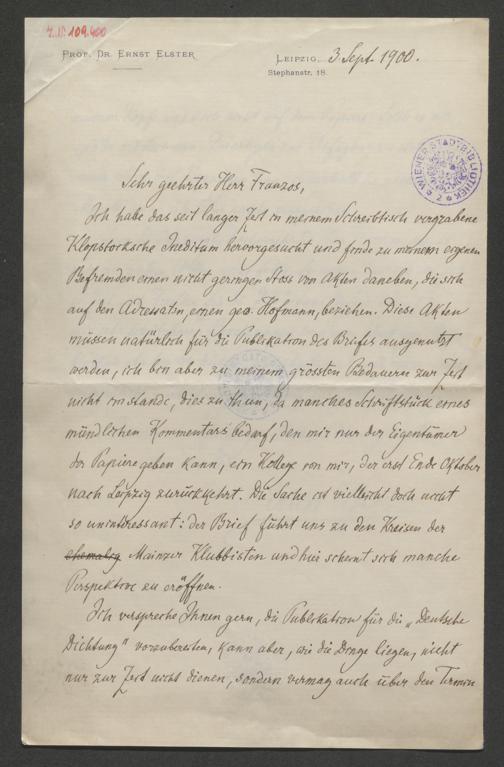 I. N. 109.400
PROF. DR. ERNST ELSTER
LEIPZIG, 3 Sept. 1900.
Stephanstr. 18.
WIENER STADTBIBLIOTHEK
Sehr geehrter Herr Franzos,
Ich habe das seit langer Zeit in meinem Schreibtisch vergrabene
Klopstocksche Ineditum hervorgesucht und finde zu meinem eigenen
Befremden einen nicht geringen Stoss von Akten daneben, die sich
auf den Adressaten, einen geo. Hofmann, beziehen. Diese Akten
müssen natürlich für die Publikation des Briefes ausgenutzt
werden, ich bin aber zu meinem grössten Bedauern zur Zeit
nicht imstande, dies zu thun, da manches Schriftstück eines
mündlichen Kommentars bedarf, den mir nur der Eigentümer
der Papiere geben kann, ein Kollege von mir, der erst Ende Oktober
nach Leipzig zurückkehrt. Die Sache ist vielleicht doch nicht
so uninteressant: der Brief führt uns zu den Kreisen der
ehemalig Mainzer Klubbisten und hier scheint sich manche
Perspektive zu eröffnen.
Ich verspreche Ihnen gern, die Publikation für die „Deutsche
Dichtung" vorzubereiten, kann aber, wie die Dinge liegen, nicht
nur zur Zeit nicht dienen, sondern vermag auch über den Termin